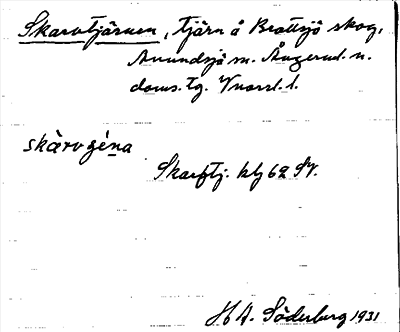 Skarvtjärnen, tjärn å Brattsjö skog,
Anundsjö sn. Ångerml. n.
doms. tg. Vnorrl. l.
skàrvgéna
Skarftj. kbl 62 SV.
H A. Söderberg 1931